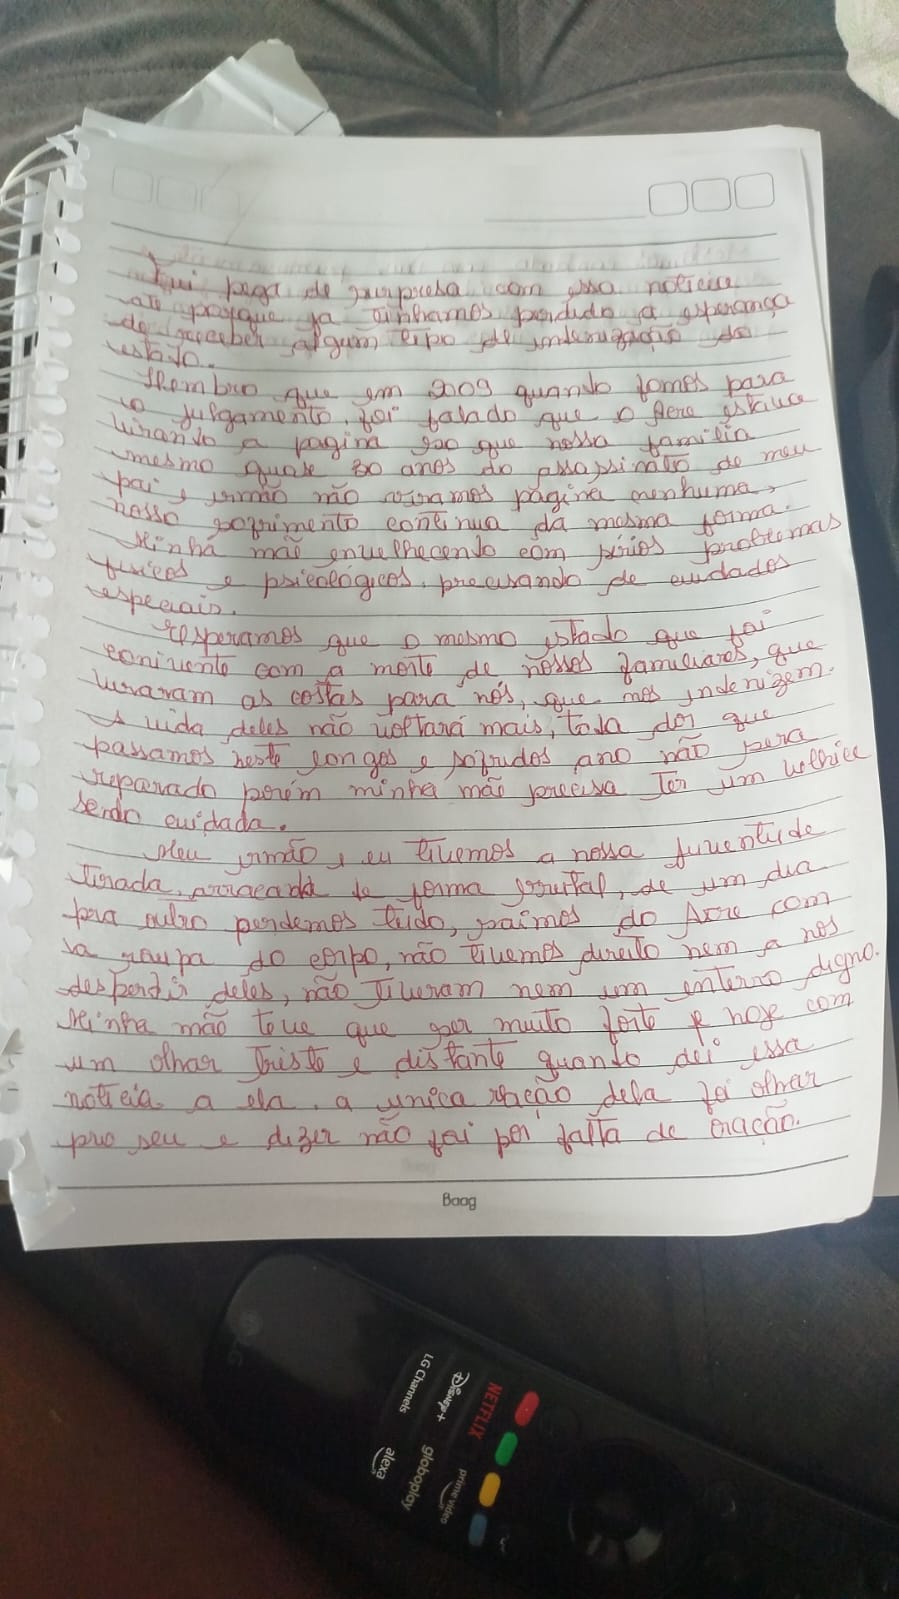 Fui pega de surpresa com essa noticia
até porque ja tinhamos perdido a esperança
de receber algum tipo de indenização do
estado.
Lembro que em 2009 quando fomos para
o julgamento, foi falado que o Acre estava
virando a pagina so que nossa familia
mesmo quase 30 anos do assassinato de meu
pai e irmão não viramos página nenhuma,
nosso sofrimento continua da mesma forma.
Minha mãe envelhecendo com sérios problemas
fisicos e psicológicos, precisando de cuidados
especiais.
Esperamos que o mesmo estado que foi
conivente com a morte de nossos familiares, que
viraram as costas para nós, que nos indenizem.
A vida deles não voltará mais, toda dor que
passamos neste longos e sofridos ano não sera
reparado porém minha mãe precisa ter um velhice
sendo cuidada.
Meu irmão e eu tivemos a nossa juventude
tirada, arracada de forma brutal, de um dia
pra outro perdemos tudo, saímos do Acre com
a roupa do corpo, não tivemos direito nem a nos
despedir deles, não tiveram nem um enterro digno.
Minha mãe teve que ser muito forte e hoje com
um olhar triste e distante quando dei essa
noticia a ela, a unica reação dela foi olhar
pro seu e dizer não foi por falta de oração.
Baag
LG
LG Channels
Disney+
NETFLIX
alexa
globoplay
prime video